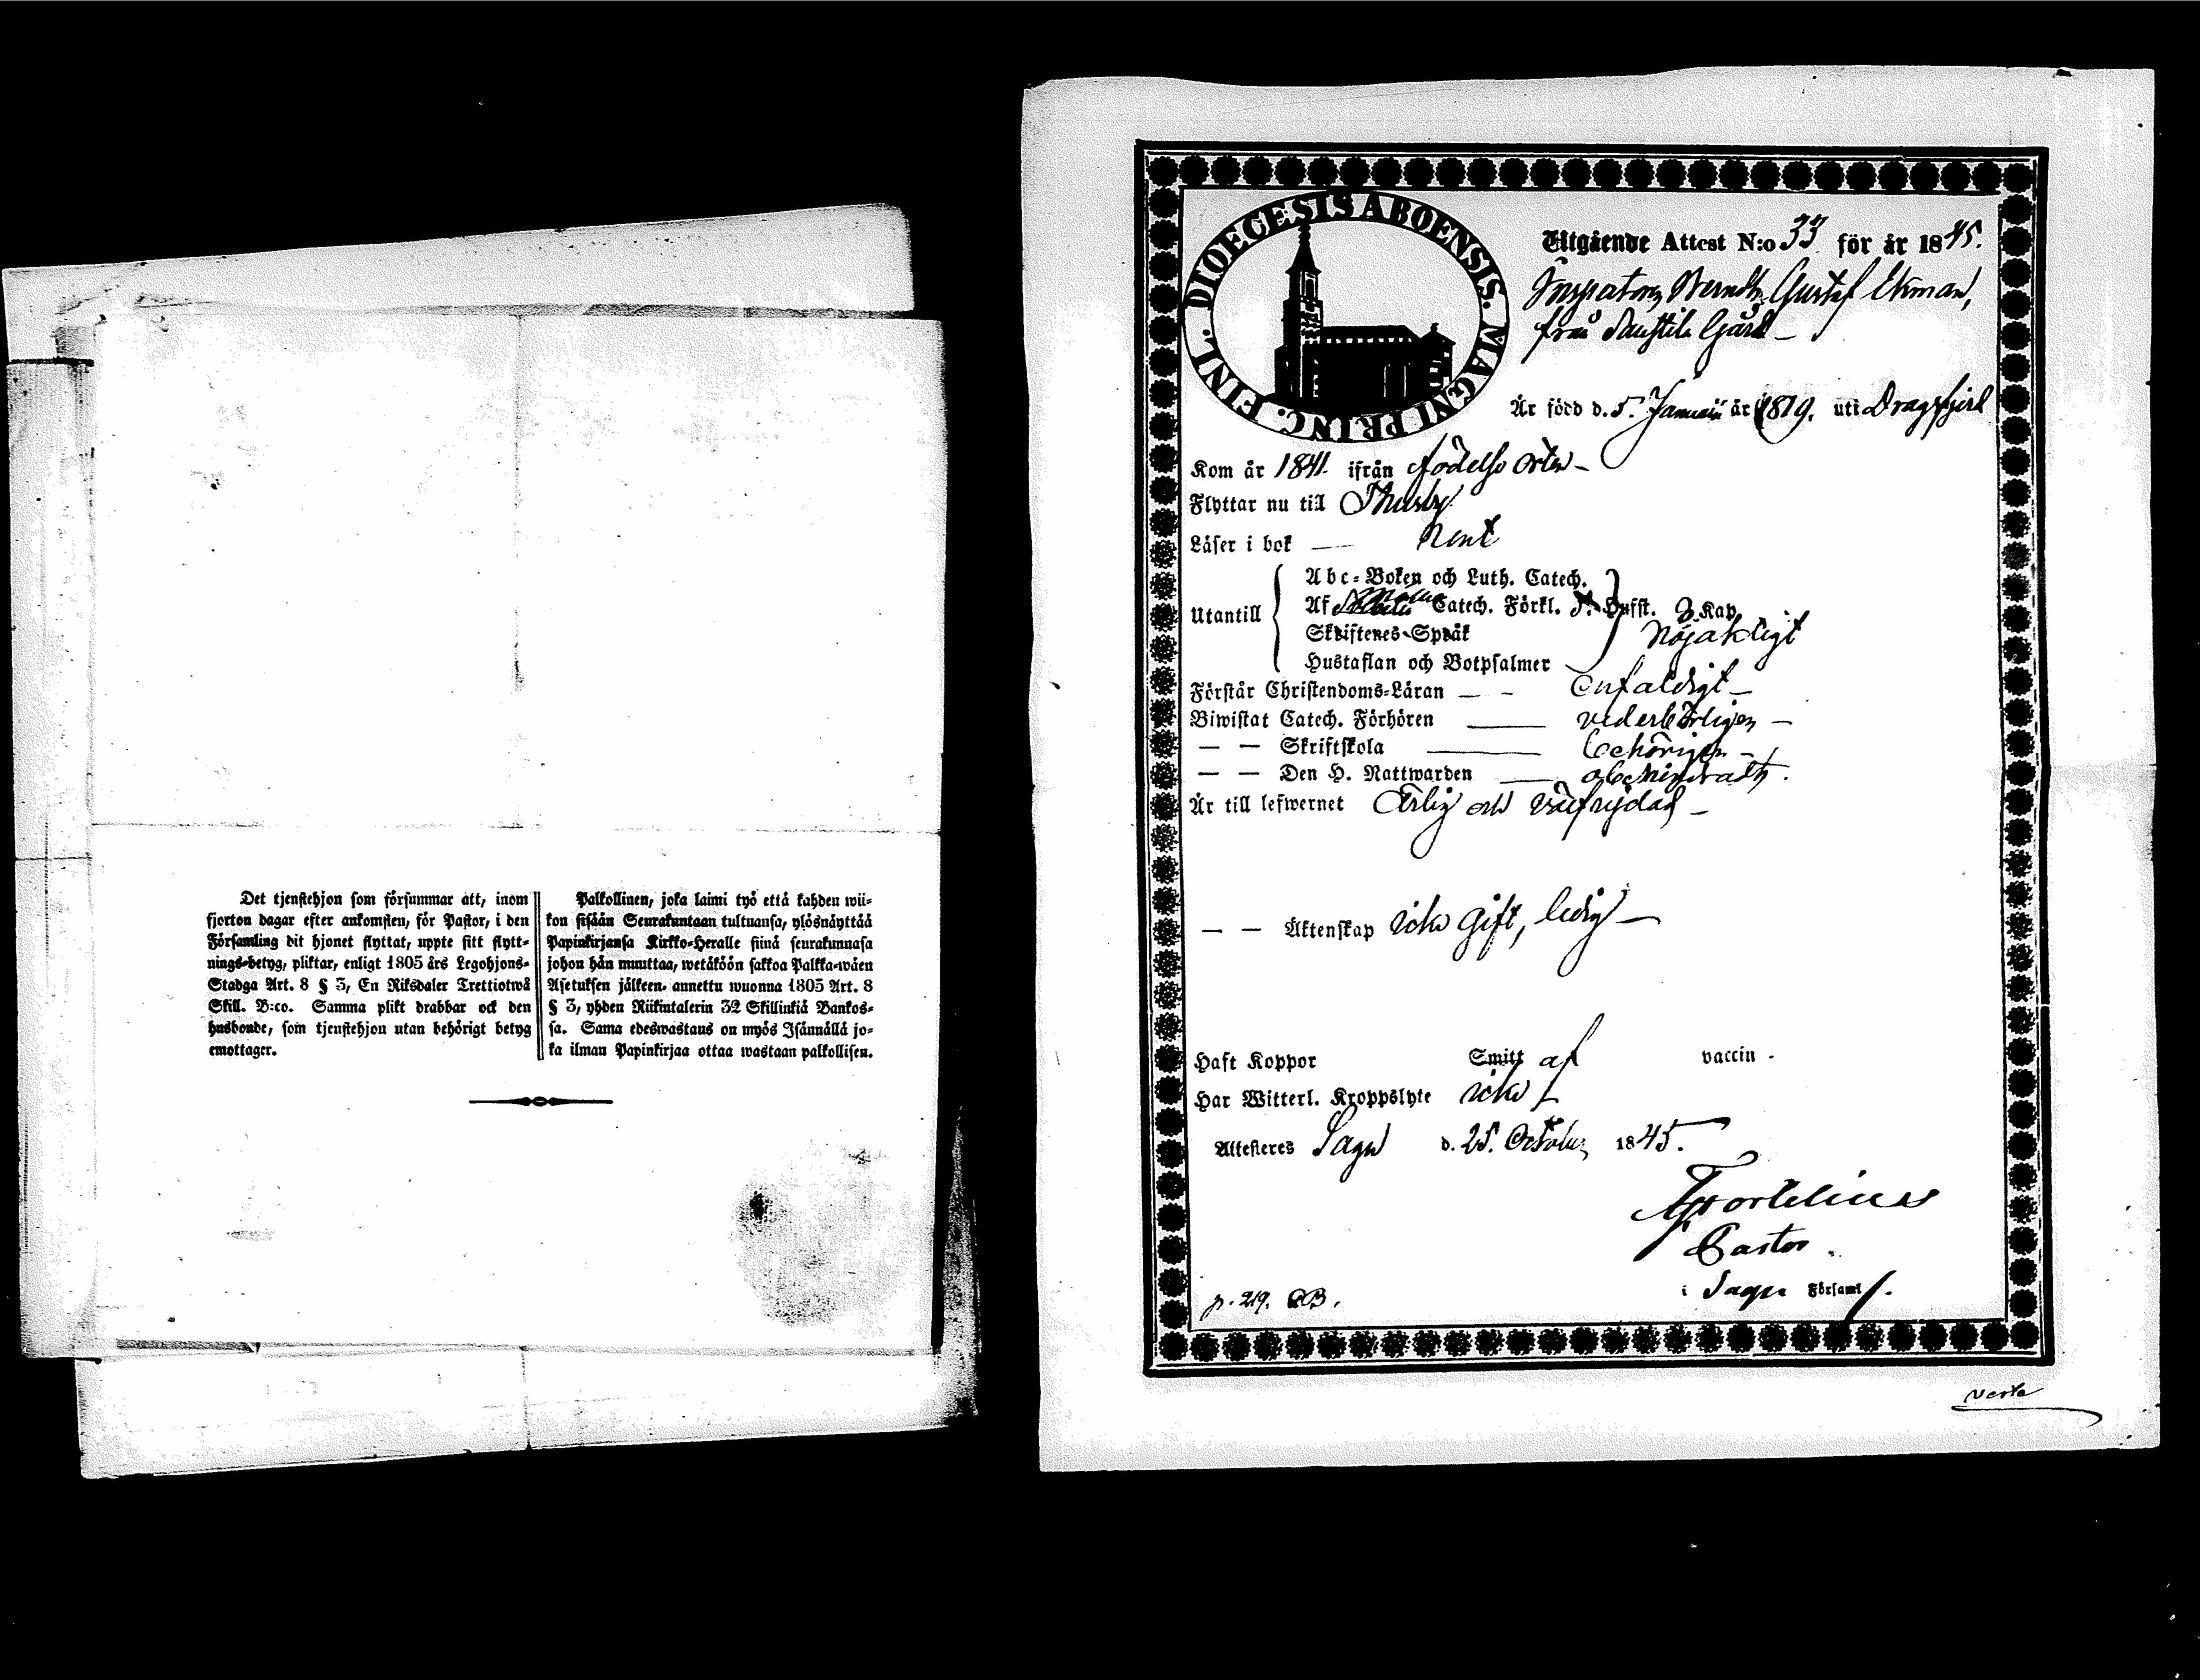 Det tjenstehjon som försummar att, inom
fjorton dagar efter ankomsten, för Pastor, i den
Församling dit hjonet flyttat, uppte sitt flytt-
nings-betyg, pliktar, enligt 1805 års Legohjons-
Stadga Art. 8 § 3, En Riksdaler Trettiotwå
Skill. B:co. Samma plikt drabbar ock den
husbonde, som tjenstehjon utan behörigt betyg
emottager.
Palkollinen, joka laimi lyö että kahden wii-
kon sisään Seurakuntaan tultuansa, ylösnäyttää
Papinkirjansa Kirkko-Heralle siinä seurakunnasa
johon hän muuttaa, wetäköön sakkoa Palkka-wäen
Asetuksen jälkeen, annettu wuonna 1805 Art. 8
§ 3, yhden Riikintalerin 32 Skillinkiä Bankos-
sa. Sama edeswastaus on myös Isännällä jo-
ka ilman Papinkirjaa ottaa wastaan palkollisen.
DIOECESIS ABOENSIS. MAGNI PRINC. FINL.
Utgående Attest N:o 33 för år 1845.
Inspectorn Berndt Gustaf Ekman,
från Gård
Är född d. 5. Januarii år 1819. uti Dragsfjerd
Kom år 1841 ifrån födelse orten
Flyttar nu till Thusby
Läser i bok — rent
Utantill
Abc-Boken och Luth. Catech.
Af Catech. Förkl. Hufst. 3 Kap
Skriftenes Språk nöjaktigt
Hustaflan och Botpsalmer
Förstår Christendoms-Läran — - enfaldigt —
Biwistat Catech. Förhören — vederbörligen —
— — Skriftskola — behörigen —
— — Den H. Nattwarden — obehindradt.
Är till lefwernet Ärlig och välfrejdad —
— — Äktenskap icke gift, ledig —
Haft Koppor Smitt af vaccin.
Har Witterl. Kroppslyte icke
Attesteres Sagu d. 25. October 1845.
Pastor.
i Sagu Församl.
p. 219. CB.
verte